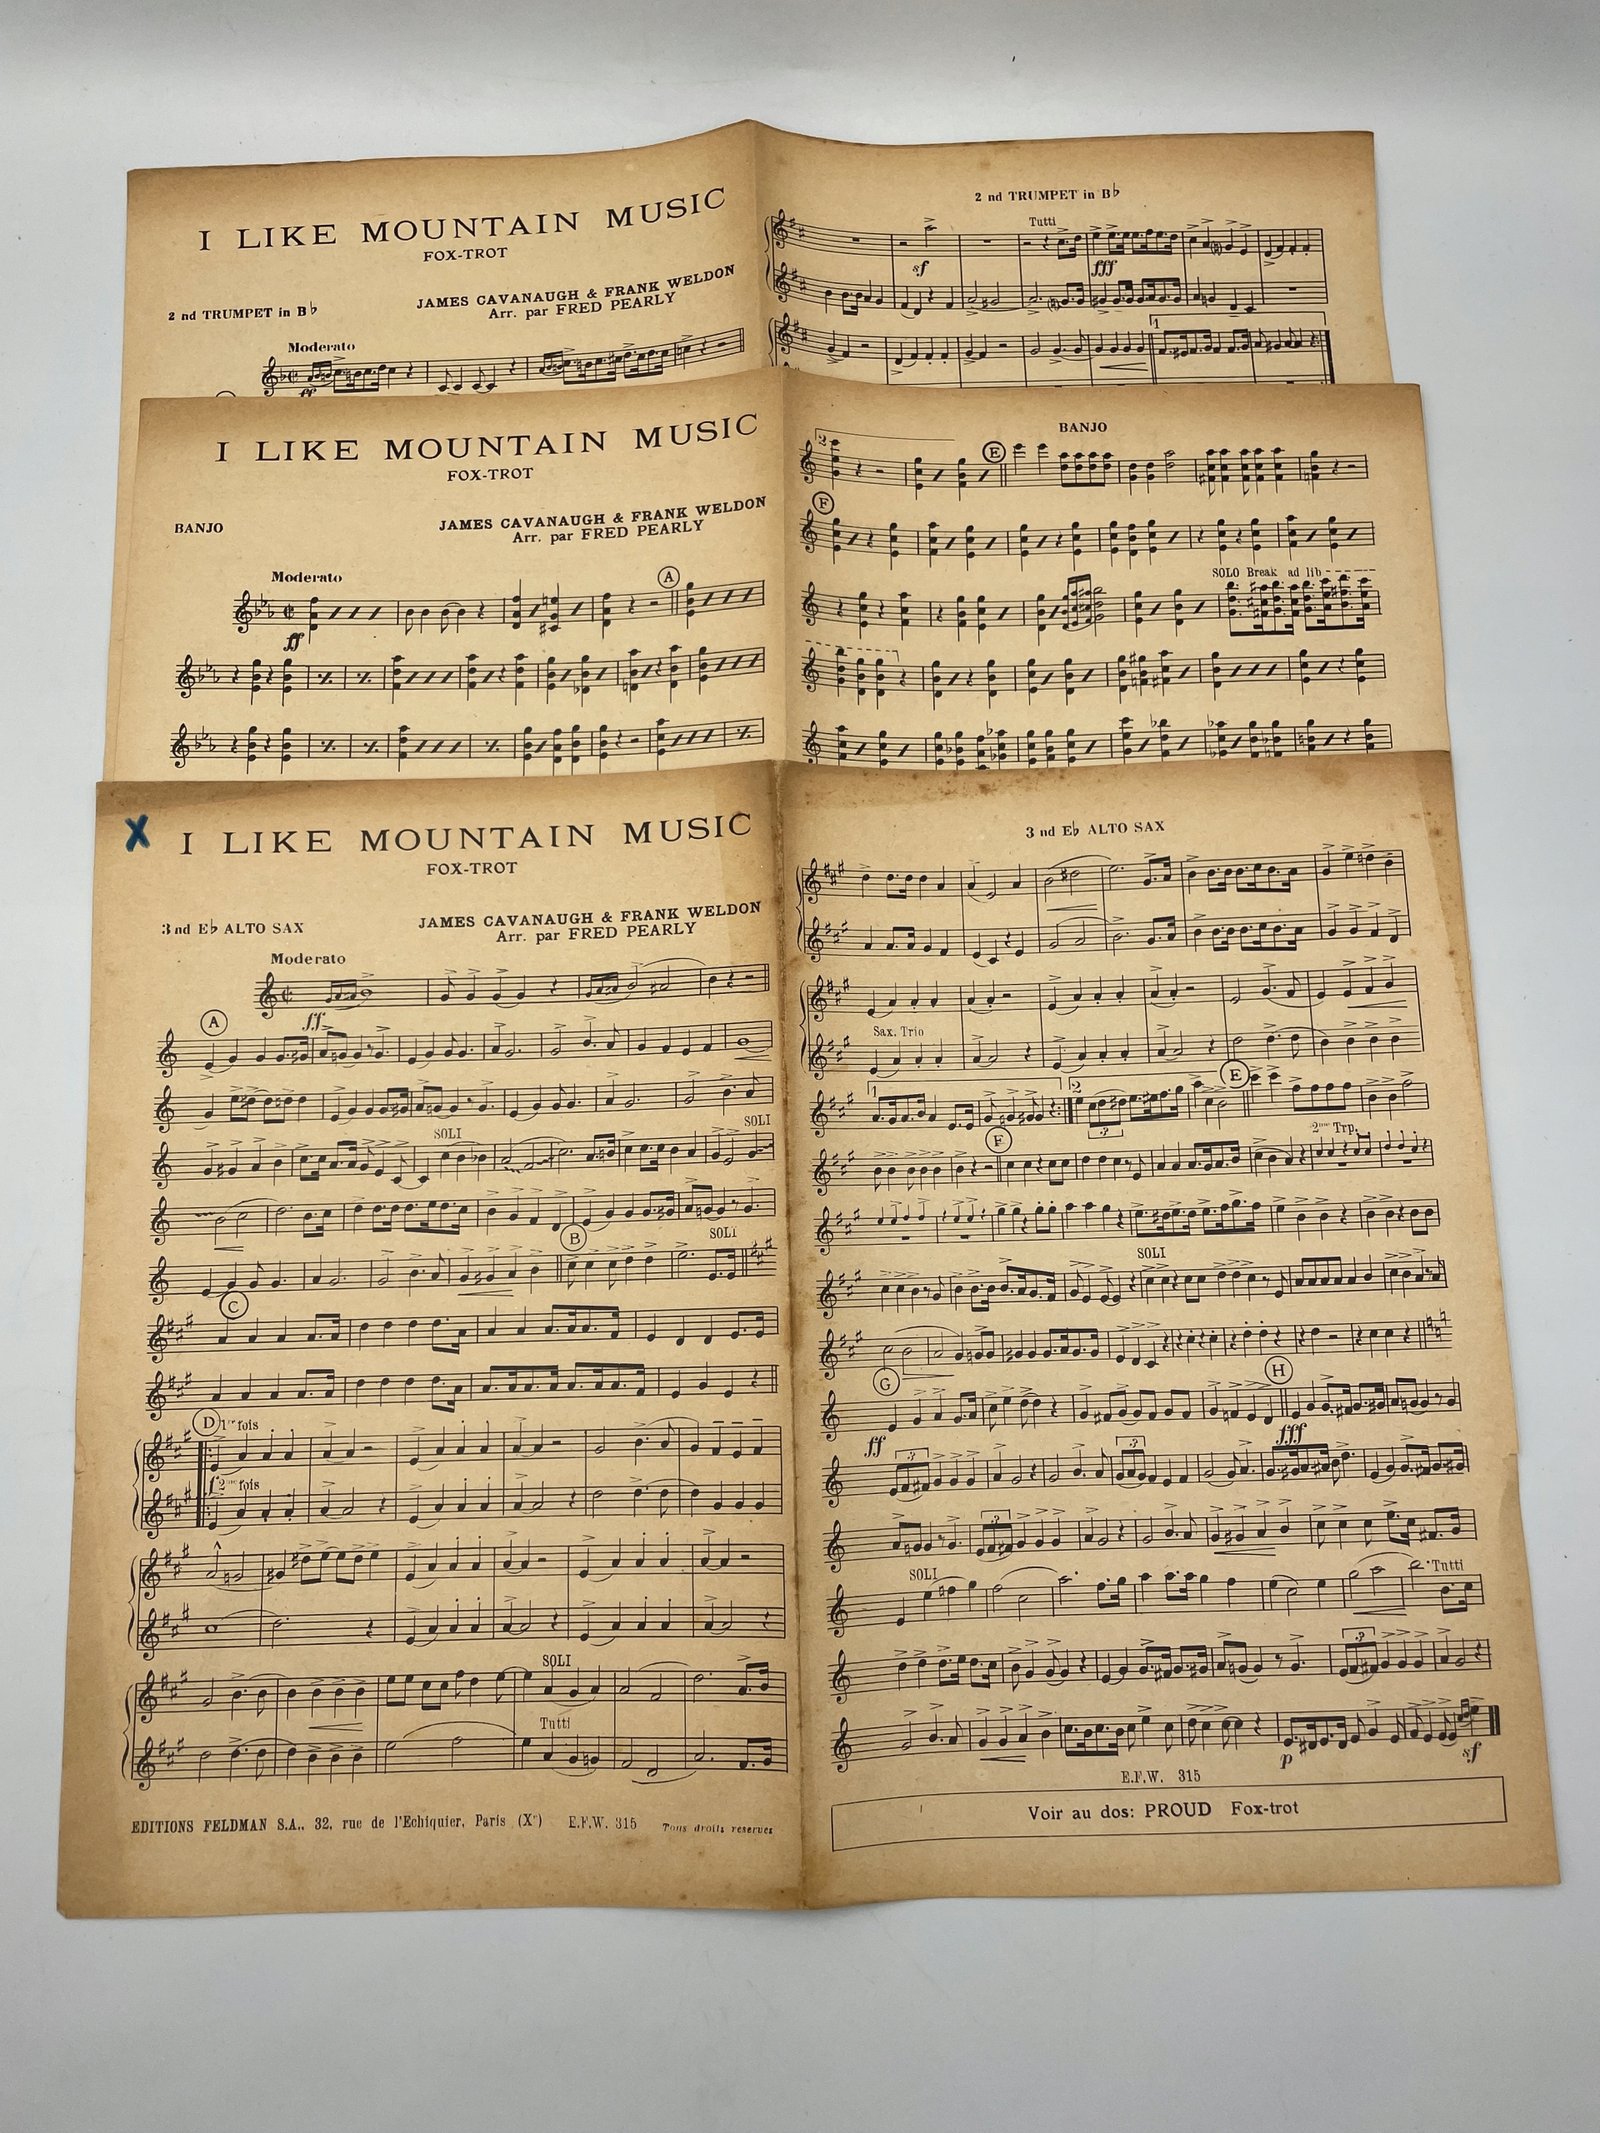 I LIKE MOUNTAIN MUSIC
FOX-TROT
JAMES CAVANAUGH & FRANK WELDON
Arr. par FRED PEARLY
2 nd TRUMPET in B♭
Moderato
ff
2 nd TRUMPET in B♭
Tutti
sf
fff
1
I LIKE MOUNTAIN MUSIC
FOX-TROT
JAMES CAVANAUGH & FRANK WELDON
Arr. par FRED PEARLY
BANJO
Moderato
A
ff
BANJO
2
E
F
SOLO Break ad lib
X
I LIKE MOUNTAIN MUSIC
FOX-TROT
JAMES CAVANAUGH & FRANK WELDON
Arr. par FRED PEARLY
3 nd E♭ ALTO SAX
Moderato
ff
A
SOLI
SOLI
B
SOLI
C
D
1re fois
f 2me fois
SOLI
Tutti
EDITIONS FELDMAN S.A., 32, rue de l'Echiquier, Paris (Xe) E.F.W. 315 Tous droits reserves
3 nd E♭ ALTO SAX
Sax. Trio
1
2
E
3
F
2me Trp.
SOLI
G
H
ff
fff
3
3
3
SOLI
Tutti
3
p
sf
E.F.W. 315
Voir au dos: PROUD Fox-trot